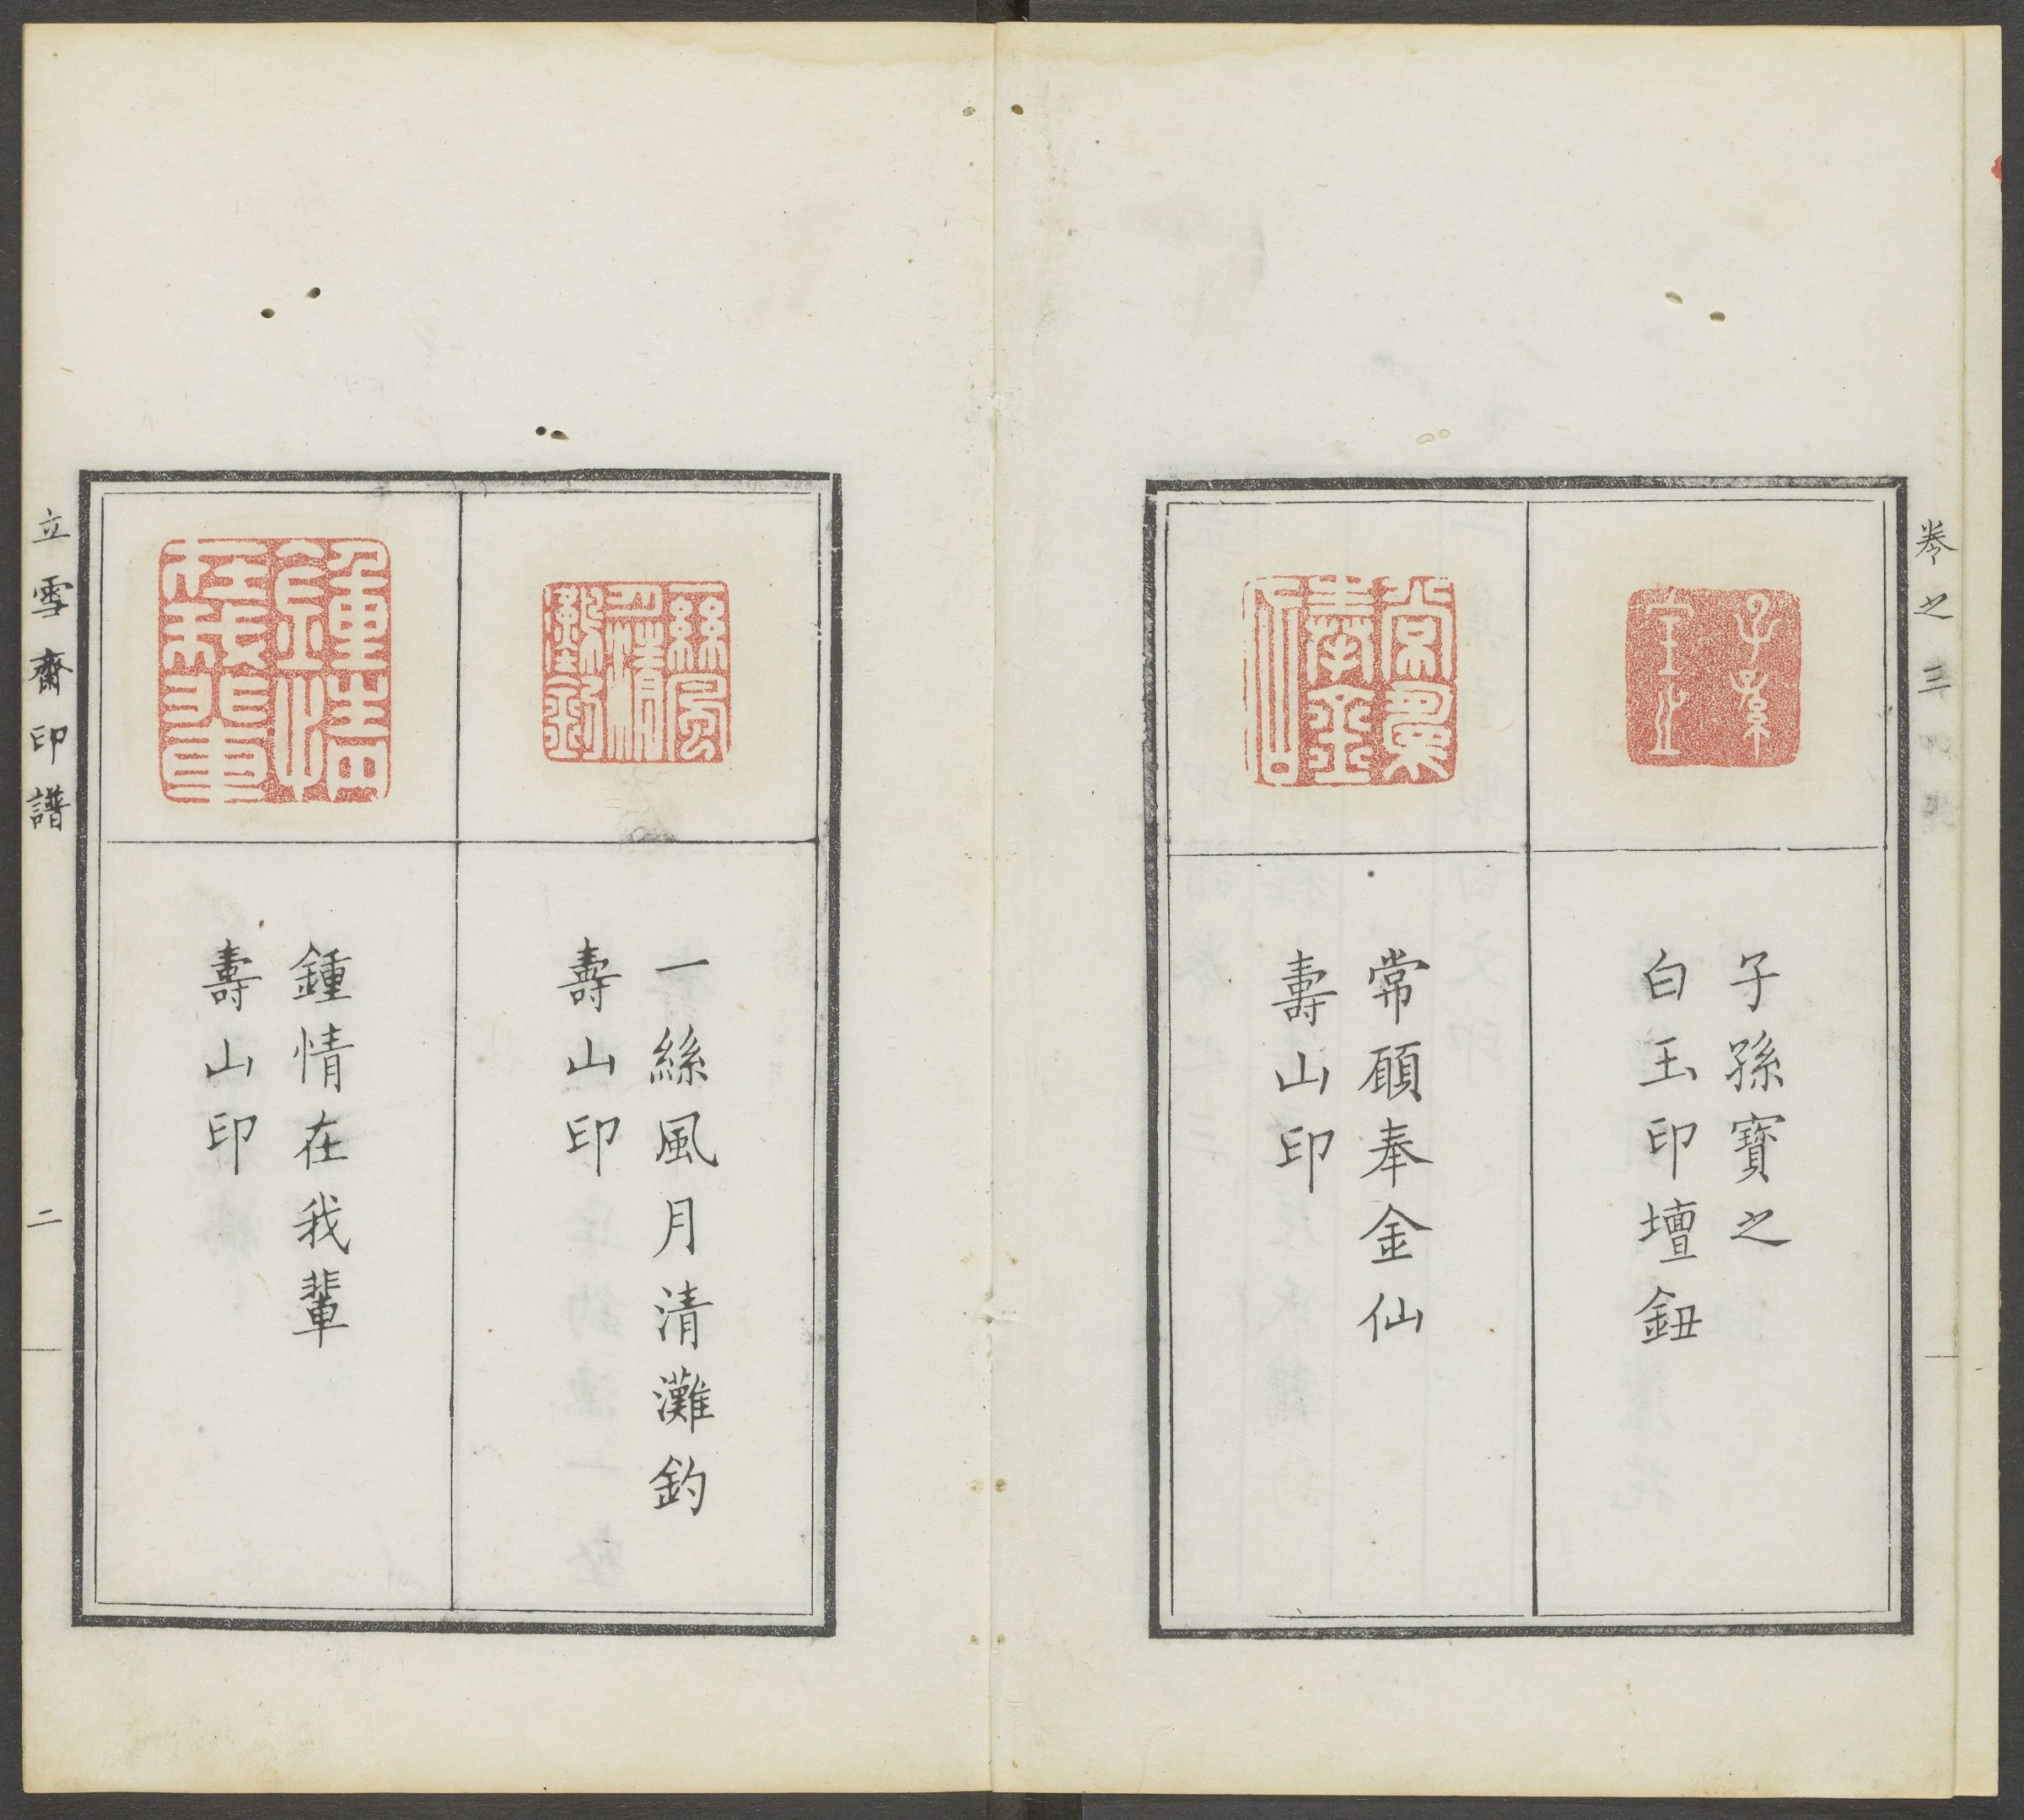 卷之三
子孫寶之
白玉印壇鈕
常願奉金仙
壽山印
一絲風月清灘釣
壽山印
鍾情在我輩
壽山印
立雪齋印譜
二